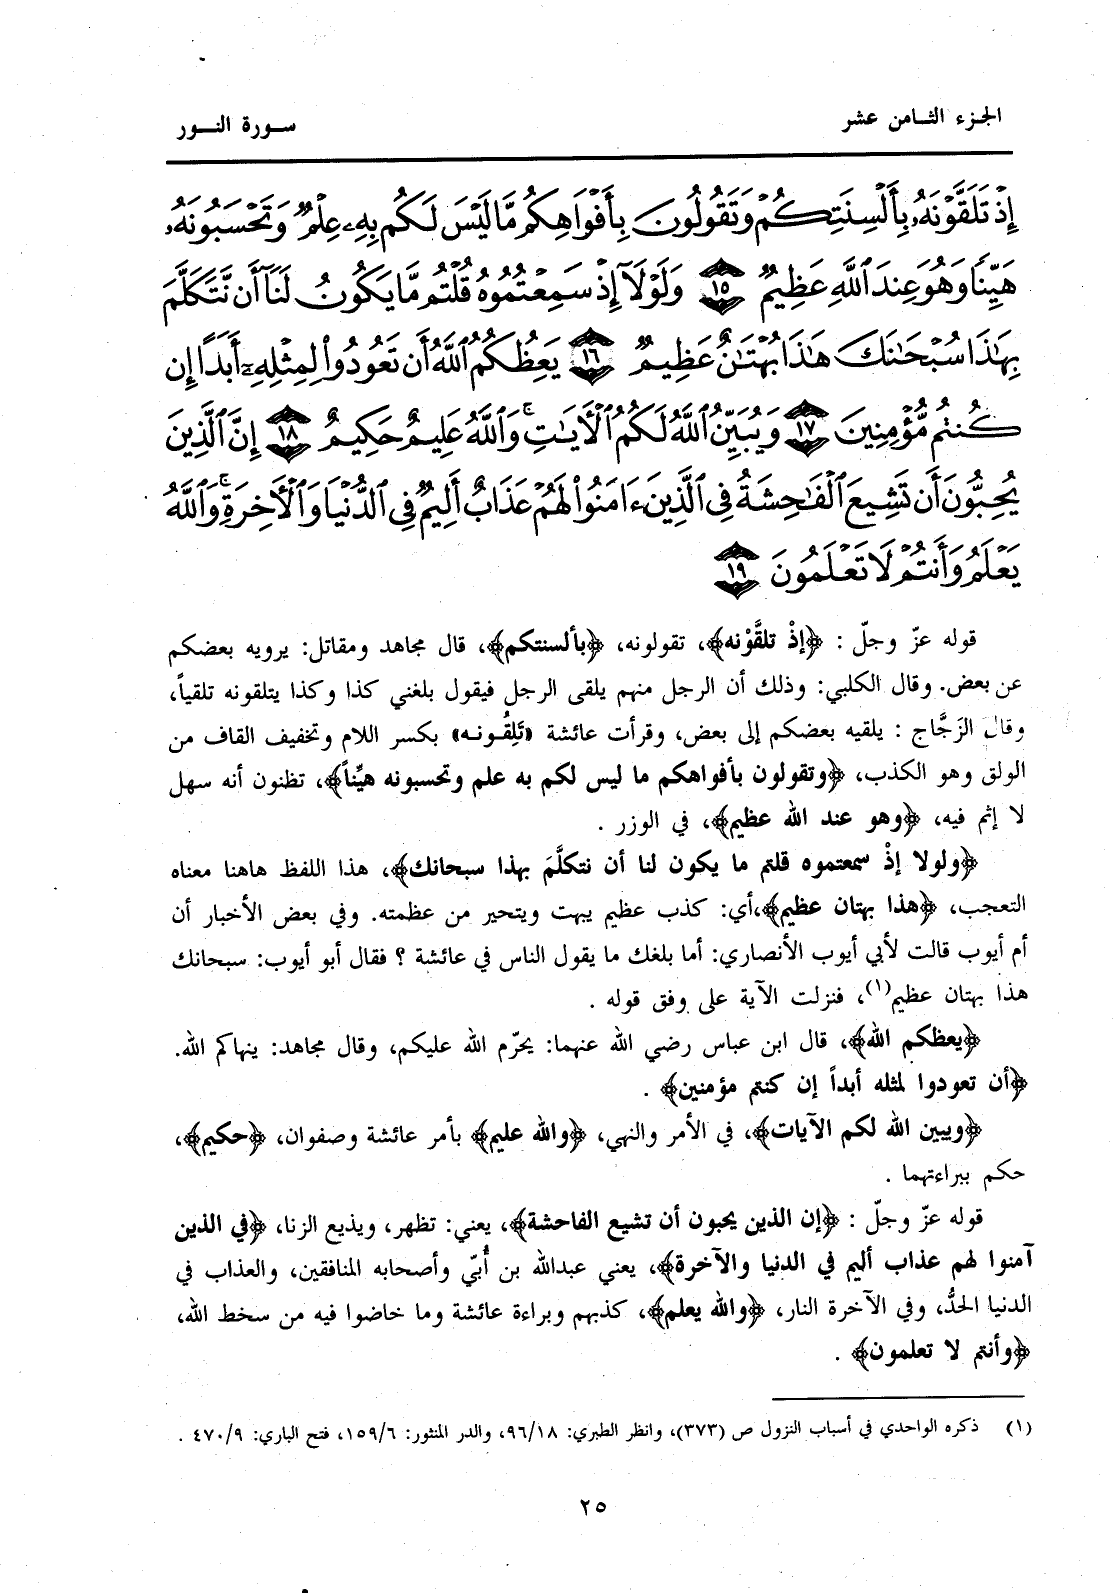 الجزء الثامن عشر
سورة النور
إِذْ تَلَقَّوْنَهُۥ بِأَلْسِنَتِكُمْ وَتَقُولُونَ بِأَفْوَاهِكُم مَّا لَيْسَ لَكُم بِهِۦ عِلْمٌ وَتَحْسَبُونَهُۥ
هَيِّنًا وَهُوَ عِندَ ٱللَّهِ عَظِيمٌ ١٥ وَلَوْلَآ إِذْ سَمِعْتُمُوهُ قُلْتُم مَّا يَكُونُ لَنَآ أَن نَّتَكَلَّمَ
بِهَٰذَا سُبْحَٰنَكَ هَٰذَا بُهْتَٰنٌ عَظِيمٌ ١٦ يَعِظُكُمُ ٱللَّهُ أَن تَعُودُوا۟ لِمِثْلِهِۦٓ أَبَدًا إِن
كُنتُم مُّؤْمِنِينَ ١٧ وَيُبَيِّنُ ٱللَّهُ لَكُمُ ٱلْأَيَٰتِ ۚ وَٱللَّهُ عَلِيمٌ حَكِيمٌ ١٨ إِنَّ ٱلَّذِينَ
يُحِبُّونَ أَن تَشِيعَ ٱلْفَٰحِشَةُ فِى ٱلَّذِينَ ءَامَنُوا۟ لَهُمْ عَذَابٌ أَلِيمٌ فِى ٱلدُّنْيَا وَٱلْأَخِرَةِ ۚ وَٱللَّهُ
يَعْلَمُ وَأَنتُمْ لَا تَعْلَمُونَ ١٩
قوله عزّ وجلّ : ﴿إذْ تلقَّوْنه﴾، تقولونه، ﴿بألسنتكم﴾، قال مجاهد ومقاتل: يرويه بعضكم
عن بعض. وقال الكلبي: وذلك أن الرجل منهم يلقى الرجل فيقول بلغني كذا وكذا يتلقونه تلقياً،
وقال الزَجَّاج : يلقيه بعضكم إلى بعض، وقرأت عائشة «تَلِقُونه» بكسر اللام وتخفيف القاف من
الولق وهو الكذب، ﴿وتقولون بأفواهكم ما ليس لكم به علم وتحسبونه هيِّناً﴾، تظنون أنه سهل
لا إثم فيه، ﴿وهو عند الله عظيم﴾، في الوزر .
﴿ولولا إذْ سمعتموه قلتم ما يكون لنا أن نتكلَّمَ بهذا سبحانك﴾، هذا اللفظ هاهنا معناه
التعجب، ﴿هذا بهتان عظيم﴾،أي: كذب عظيم يبهت ويتحير من عظمته. وفي بعض الأخبار أن
أم أيوب قالت لأبي أيوب الأنصاري: أما بلغك ما يقول الناس في عائشة ؟ فقال أبو أيوب: سبحانك
هذا بهتان عظيم(١)، فنزلت الآية على وفق قوله .
﴿يعظكم الله﴾، قال ابن عباس رضي الله عنهما: يحرّم الله عليكم، وقال مجاهد: ينهاكم الله.
﴿أن تعودوا لمثله أبداً إن كنتم مؤمنين﴾ .
﴿ويبين الله لكم الآيات﴾، في الأمر والنهي، ﴿والله عليم﴾ بأمر عائشة وصفوان، ﴿حكيم﴾،
حكم ببراءتهما .
قوله عزّ وجلّ : ﴿إن الذين يحبون أن تشيع الفاحشة﴾، يعني: تظهر، ويذيع الزنا، ﴿في الذين
آمنوا لهم عذاب أليم في الدنيا والآخرة﴾، يعني عبدالله بن أُبيّ وأصحابه المنافقين، والعذاب في
الدنيا الحدُّ، وفي الآخرة النار، ﴿والله يعلم﴾، كذبهم وبراءة عائشة وما خاضوا فيه من سخط الله،
﴿وأنتم لا تعلمون﴾ .
(١) ذكره الواحدي في أسباب النزول ص (٣٧٣)، وانظر الطبري: ٩٦/١٨، والدر المنثور: ١٥٩/٦، فتح الباري: ٤٧٠/٩ .
٢٥